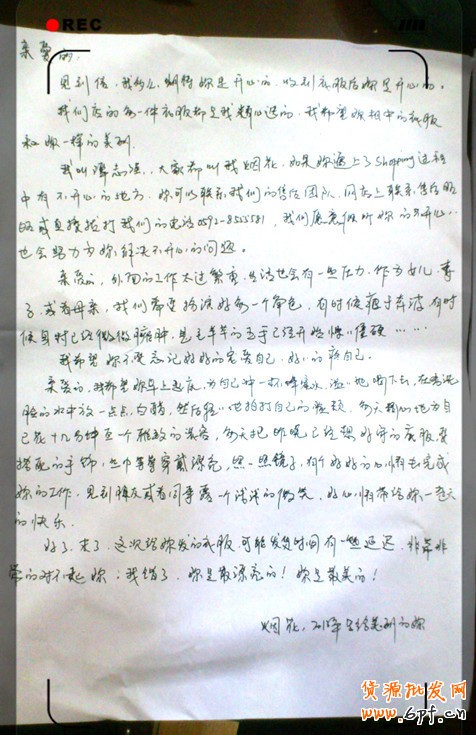 REC
亲爱的,
见到信,我多么期待你是开心的,收到衣服后你是开心的。
我们店的每一件衣服都是我精心选的,我希望你相中的衣服
和你一样的美丽
我叫,大家都叫我烟花,如果你遇上了Shopping过程
中有不开心的地方,你可以联系我们的售后团队,网店上联系售后
或直接拨打我们的电话0592-8555581,我们愿意倾听你的不开心,
也会努力为你解决不开心的问题。
亲爱的,外面的工作太过繁重,生活也会有一些压力,作为女儿、妻
子、或者母亲,我们都要扮演好每一个角色,有时候疲于奔波,有时
候身材已经微微臃肿,是手已经开始僵硬……
我希望你不要忘记好好的宠爱自己,好好的疼自己。
亲爱的,我希望你早上起床,为自己冲一杯蜂蜜水,喝下去,在洗
脸的水中放一点点白醋,然后轻地拍打自己的脸颊,每天自
己花十几分钟画一个精致的淡容,每天把昨晚已经想好的衣服,要
搭配的手饰,穿戴漂亮,照一照镜子,有个好好的心情去完成
你的工作,见到朋友或者同事露一个浅浅的微笑,好心情带给你一整天
的快乐
好了,这次给你发的衣服,可能发货时间有一些延迟,非常非
常的对不起你;我错了,你是最漂亮的!你是最美的!
烟花,美丽的你
货源批发网
www.6pf.cn